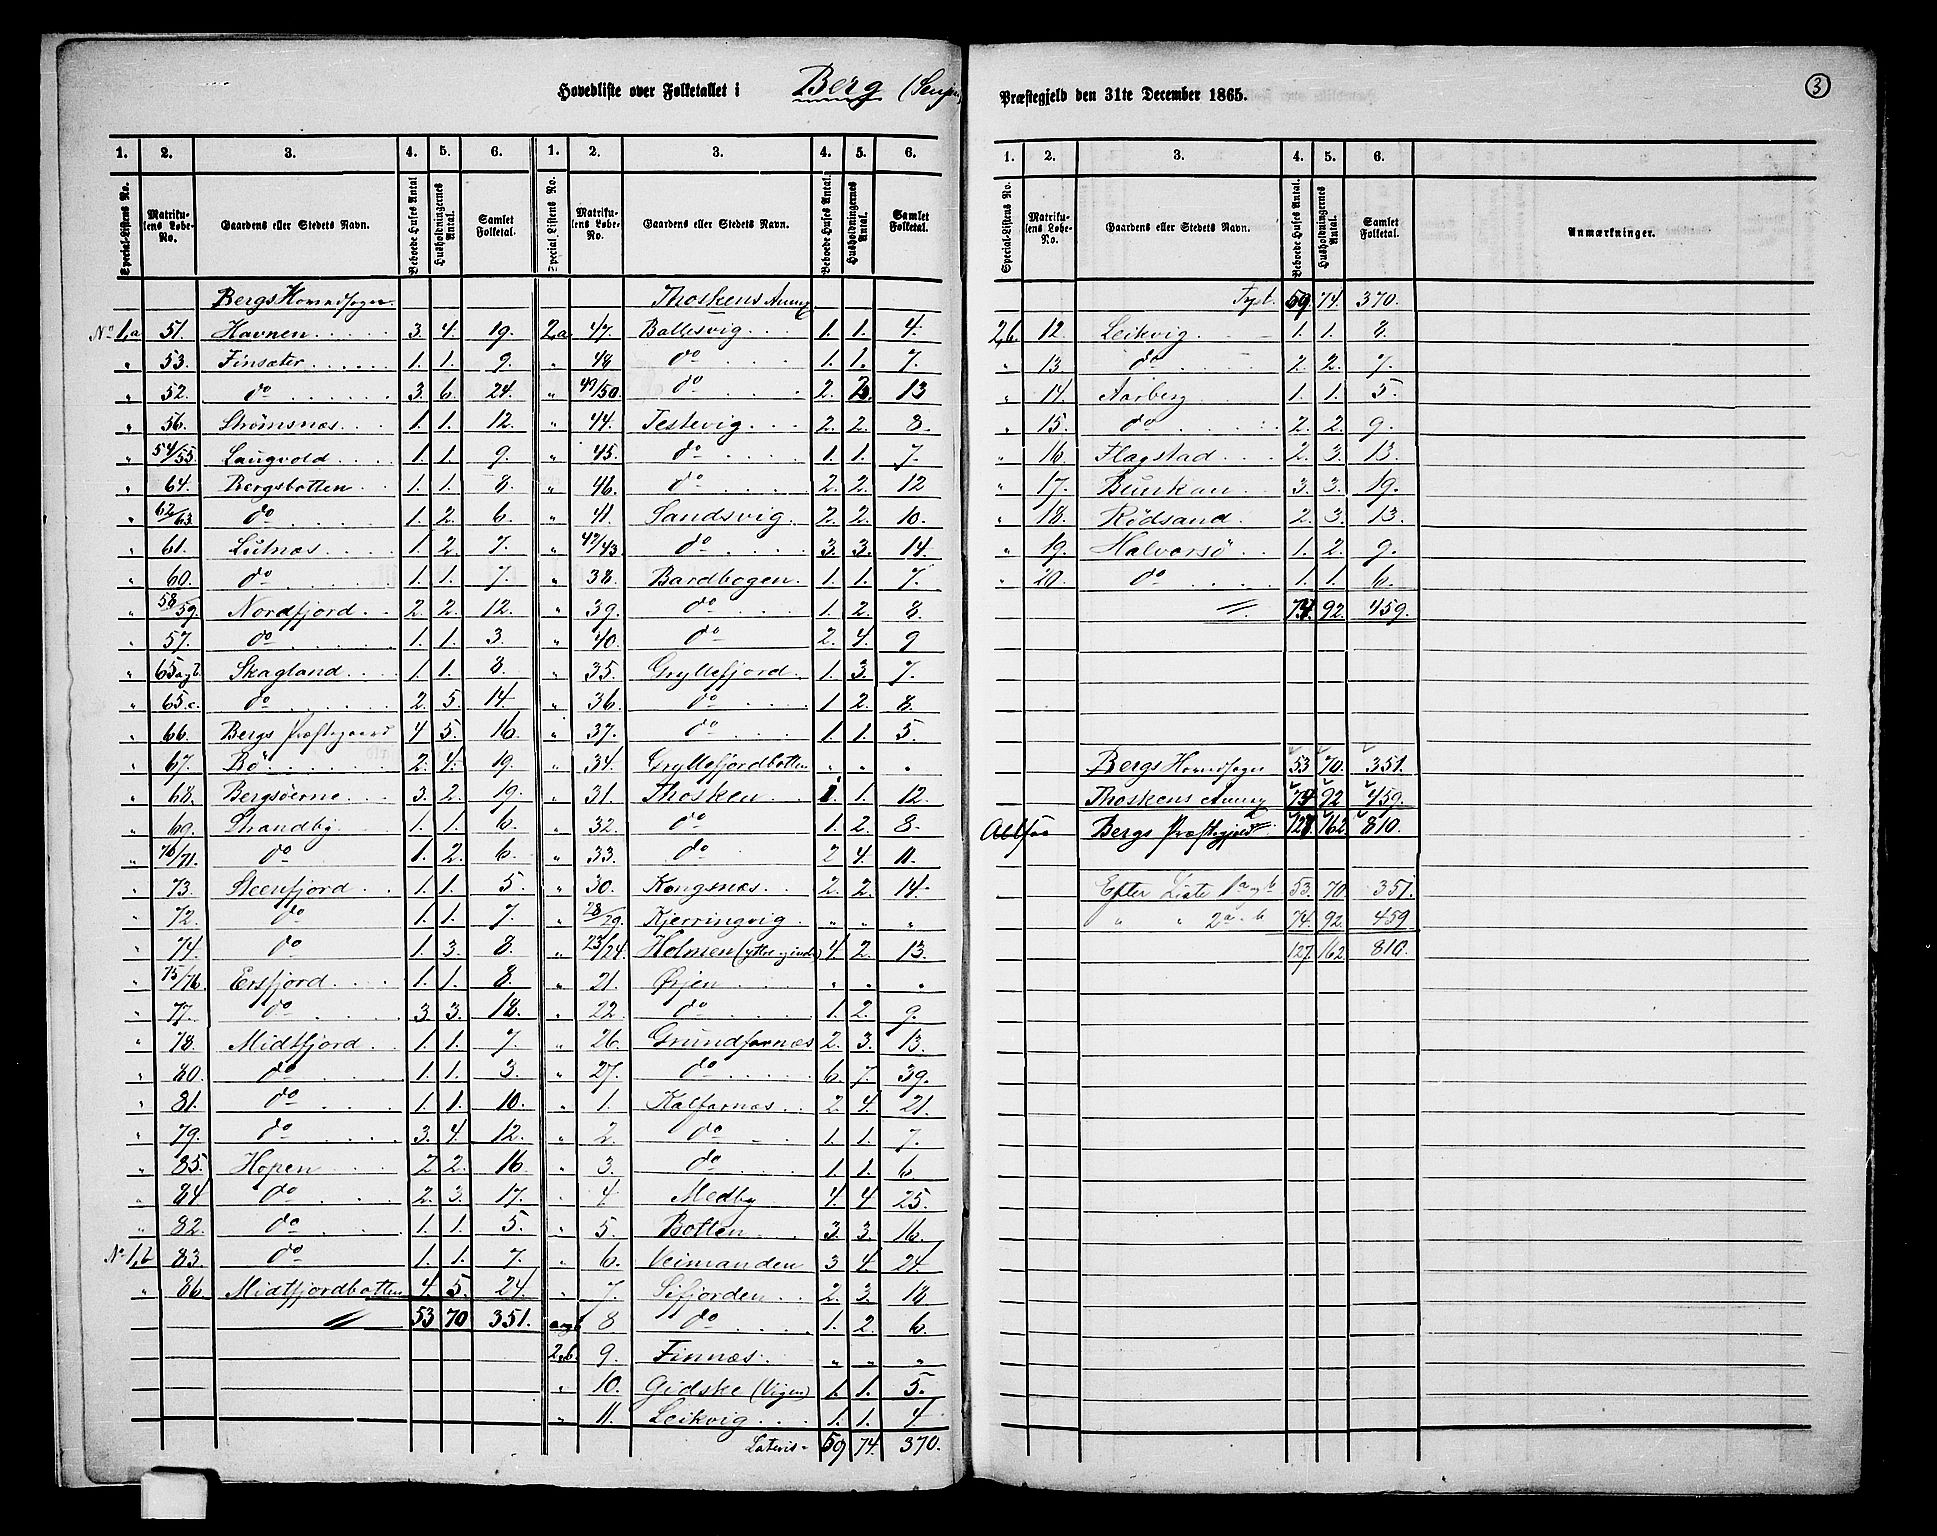 Hovedliste over Folketallet i Berg (Senjen)
1. 2. 3. 4. 5. 6. 1. 2. 3. 4. 5. 6.
Special-Listens No. Matrikulens Løbe-No. Gaardens eller Stedets Navn. Beboede Huses Antal Husholdningernes Antal. Samlet Folketal. Special Listens No. Matrikulens Løbe-No. Gaardens eller Stedets Navn. Beboede Huses Antal. Husholdningernes Antal. Samlet Folketal.
Bergs Hovedsogn.
No 1,a 51. Havnen 3. 4. 19.
" 53. Finsæter 1. 1. 9.
" 52. do 3. 6. 24.
" 56. Strømsnæs 1. 1. 12.
" 54/55. Laugvold 1. 1. 9.
" 64. Bergsbotten 1. 1. 8.
" 62/63. do 1. 2. 6.
" 61. Lutnæs 1. 2. 7.
" 60. do 1. 1. 7.
" 58/59. Nordfjord 2. 2. 12.
" 57. do 1. 1. 3.
" 65 a og b. Skagland 1. 1. 8.
" 65.c. do 2. 5. 14.
" 66. Bergs Præstegaard 4 5. 16.
" 67. Bö 2. 4. 19.
" 68. Bergsöerne 3. 2. 19.
" 69. Strandby 1. 1. 6.
" 70/71. do 1. 2. 6.
" 73. Steenfjord 1. 1. 5.
" 72. do 1. 1. 7.
" 74. do 1. 3. 8.
" 75/76. Ersfjord 1. 1. 8.
" 77. do 3 3. 18.
" 78. Midtfjord 1. 1. 7.
" 80. do 1. 1. 3.
" 81. do 1. 1. 10.
" 79. do 3. 4. 12.
" 85. Hopen 2 2. 16
" 84 do 2. 3. 17.
" 82. do 1. 1. 5.
No 1,b 83. do 1. 1. 7.
" 86. Midtfjordbotten 4. 5. 24.
53 70 351.
Thoskens Annex
2,a 47. Ballesvig 1. 1. 4.
" 48 do 1. 1. 7.
" 49/50. do 2. 3. 13
" 44. Testevig 2. 2. 8.
" 45. do 1. 1. 7.
" 46. do 2. 2. 12
" 41. Sandsvig 2. 2. 10.
" 42/43. do 3. 3. 14.
" 38. Bardbogen 1. 1. 7.
" 39. do 1. 2. 8.
" 40. do 2. 4. 9
" 35. Gryllefjord 1. 3. 7.
" 36. do 1 2. 8.
" 37. do 1. 1. 5.
" 34. Gryllefjordbotten " " "
" 31. Thosken 1. 1. 12.
" 32. do 1. 2. 8.
" 33. do 2 4. 11.
" 30. Kongsnæs 2. 2. 14.
" 28/29. Kjerringvig " " "
" 23/24. Holmen (yttre og indre) 4. 2. 13.
" 21. Ørjen " " "
" 22 do 1. 2. 9.
" 26. Grundfarnæs 2. 3. 13.
" 27. do 6. 7. 39.
" 1. Kalfarnæs 2. 4. 21.
" 2. do 1. 1. 7.
" 3. do 1. 1. 6.
" 4. Medby 4. 4 25.
" 5. Botten 3. 3. 16.
" 6. Veimanden 3 4. 24.
" 7. Sifjorden 2. 3. 18
a og b 8. do 1. 2. 6.
2,b. 9. Finnæs " " "
" 10. Gidske (Vigen) 1. 1. 5.
" 11. Leikvig 1. 1. 4.
Lateris 59 74. 370.
Præstegjeld den 31te December 1865. 3
1. 2. 3. 4. 5. 6.
Special-Listens No. Matrikulens Løbe-No. Gaardens eller Stedets Navn. Beboede Huses Antal. Husholdningernes Antal. Samlet Folketal. Anmærkninger.
59. 74. 370.
2,b. 12. Leikvig 1. 1. 8.
" 13. do 2. 2. 7.
" 14. Aarberg 1. 1. 5.
" 15. do 2. 2. 9.
" 16. Flagstad 2. 3. 13.
" 17. Bunkan 3. 3. 19.
" 18. Rödsand 2. 3. 13.
" 19. Halvarsö 1. 2. 9.
" 20. do 1. 1. 6.
74. 92. 459.
Bergs Hovedsogn 53 70. 351.
Thoskens Annex 74 92 459.
Altsaa Bergs Præstegjeld 127 162. 810.
Efter Liste 1 a og b 53. 70. 351.
" " 2 a - b 74. 92. 459
127. 162. 810.